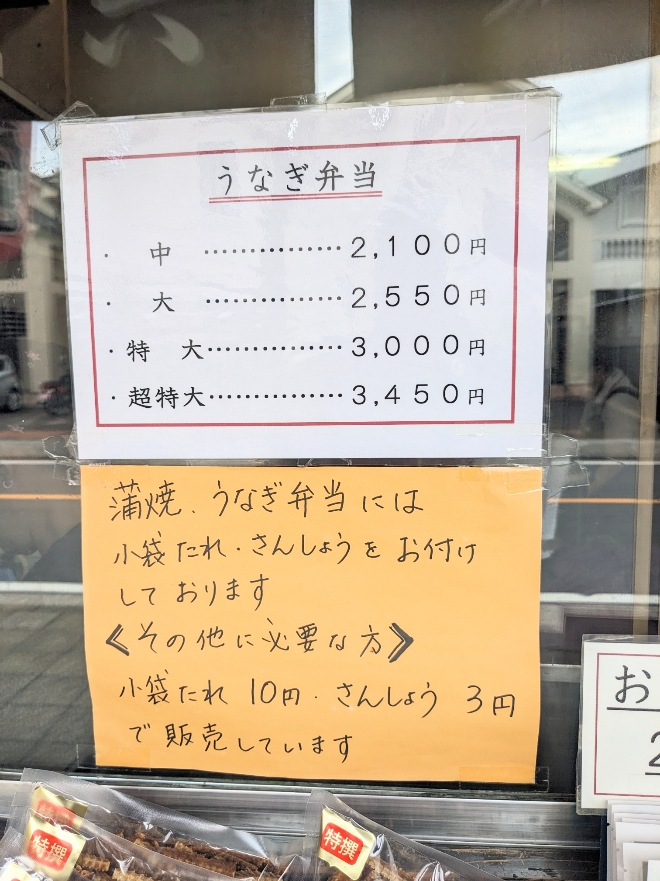 うなぎ弁当
・ 中 ……………2,100円
・ 大 ……………2,550円
・特 大……………3,000円
・超特大……………3,450円
蒲焼、うなぎ弁当には
小袋たれ・さんしょうをお付け
しております
《その他に必要な方》
小袋たれ 10円・さんしょう 3円
で販売しています
お
2
特撰
特撰
特撰